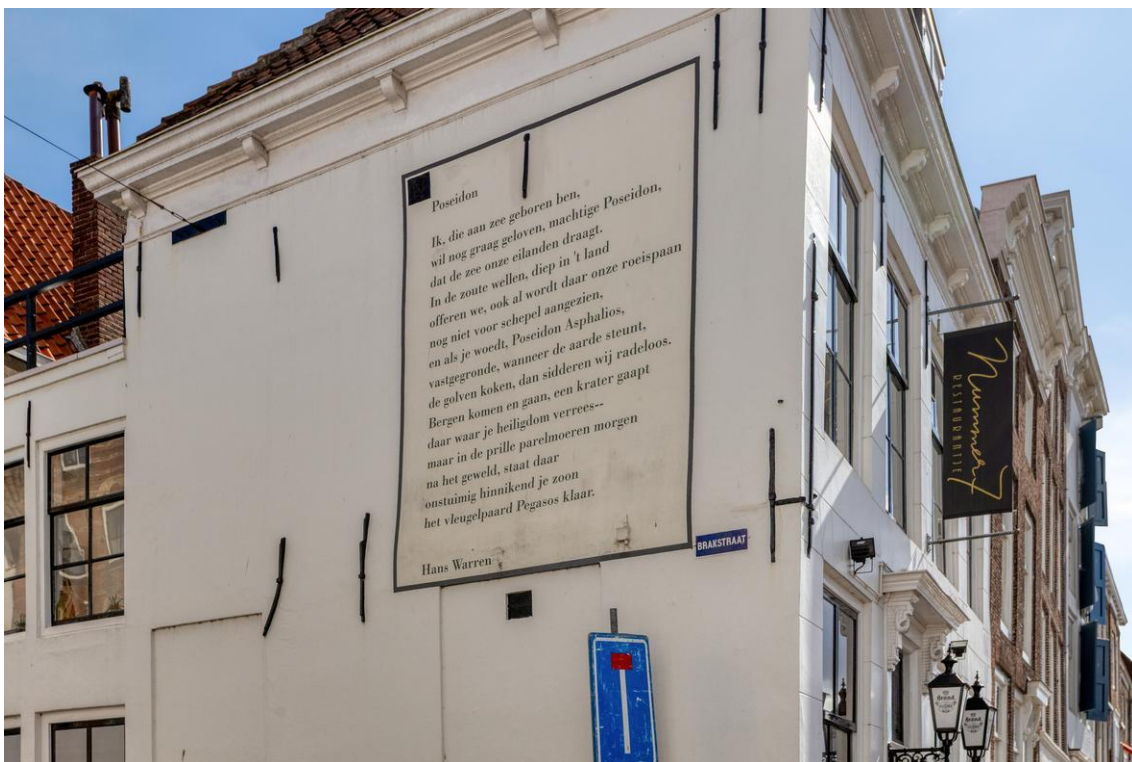 Poseidon
Ik, die aan zee geboren ben,
wil nog graag geloven, machtige Poseidon,
dat de zee onze eilanden draagt.
In de zoute wellen, diep in 't land
offeren we, ook al wordt daar onze roeispaan
nog niet voor schepel aangezien,
en als je woedt, Poseidon Asphalios,
vastgegronde, wanneer de aarde steunt,
de golven koken, dan sidderen wij radeloos.
Bergen komen en gaan, een krater gaapt
daar waar je heiligdom verrees--
maar in de prille parelmoeren morgen
na het geweld, staat daar
onstuimig hinnikend je zoon
het vleugelpaard Pegasos klaar.
Hans Warren
BRAKSTRAAT
Nummer 7
RESTAURANTJE
Brand